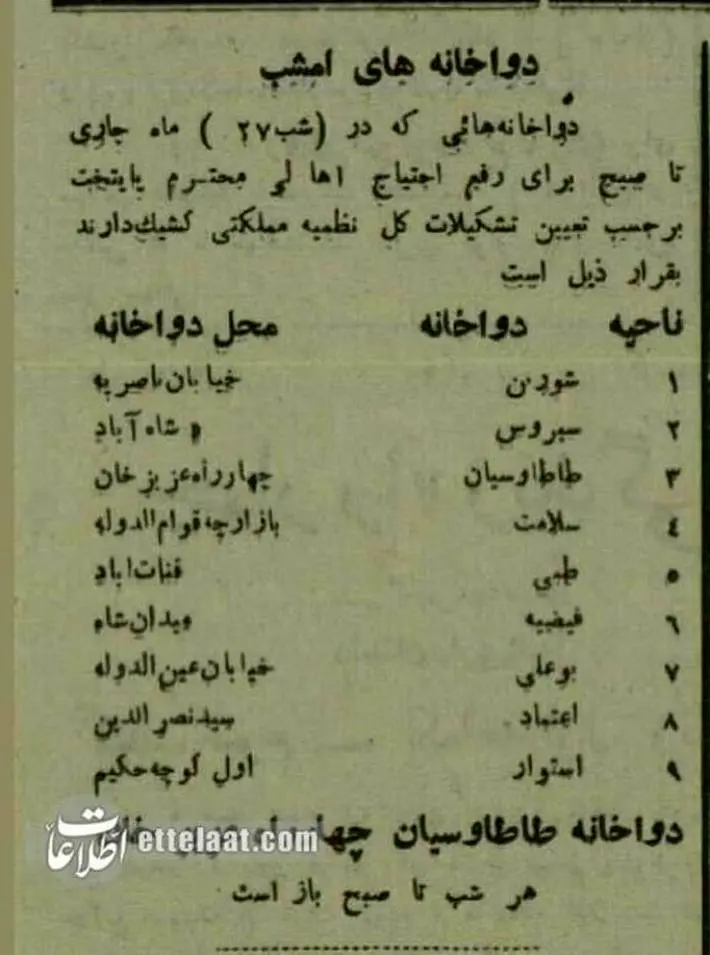 دواخانه های امشب
دواخانه‌هائی که در (شب ۲۷) ماه جاری
تا صبح برای رفع احتیاج اهالی محترم پایتخت
برحسب تعیین تشکیلات کل نظمیه مملکتی کشیک دارند
بقرار ذیل است
ناحیه دواخانه محل دواخانه
۱ شورن خیابان ناصریه
۲ سیروس » شاه آباد
۳ طاطاوسیان چهارراه عزیزخان
٤ سلامت بازارچه قوام الدوله
۵ طبی قنات اباد
٦ فیضیه میدان شاه
۷ بوعلی خیابان عین الدوله
۸ اعتماد سیدنصرالدین
۹ استوار اول کوچه حکیم
دواخانه طاطاوسیان
هر شب تا صبح باز است
اطلاعات ettelaat.com